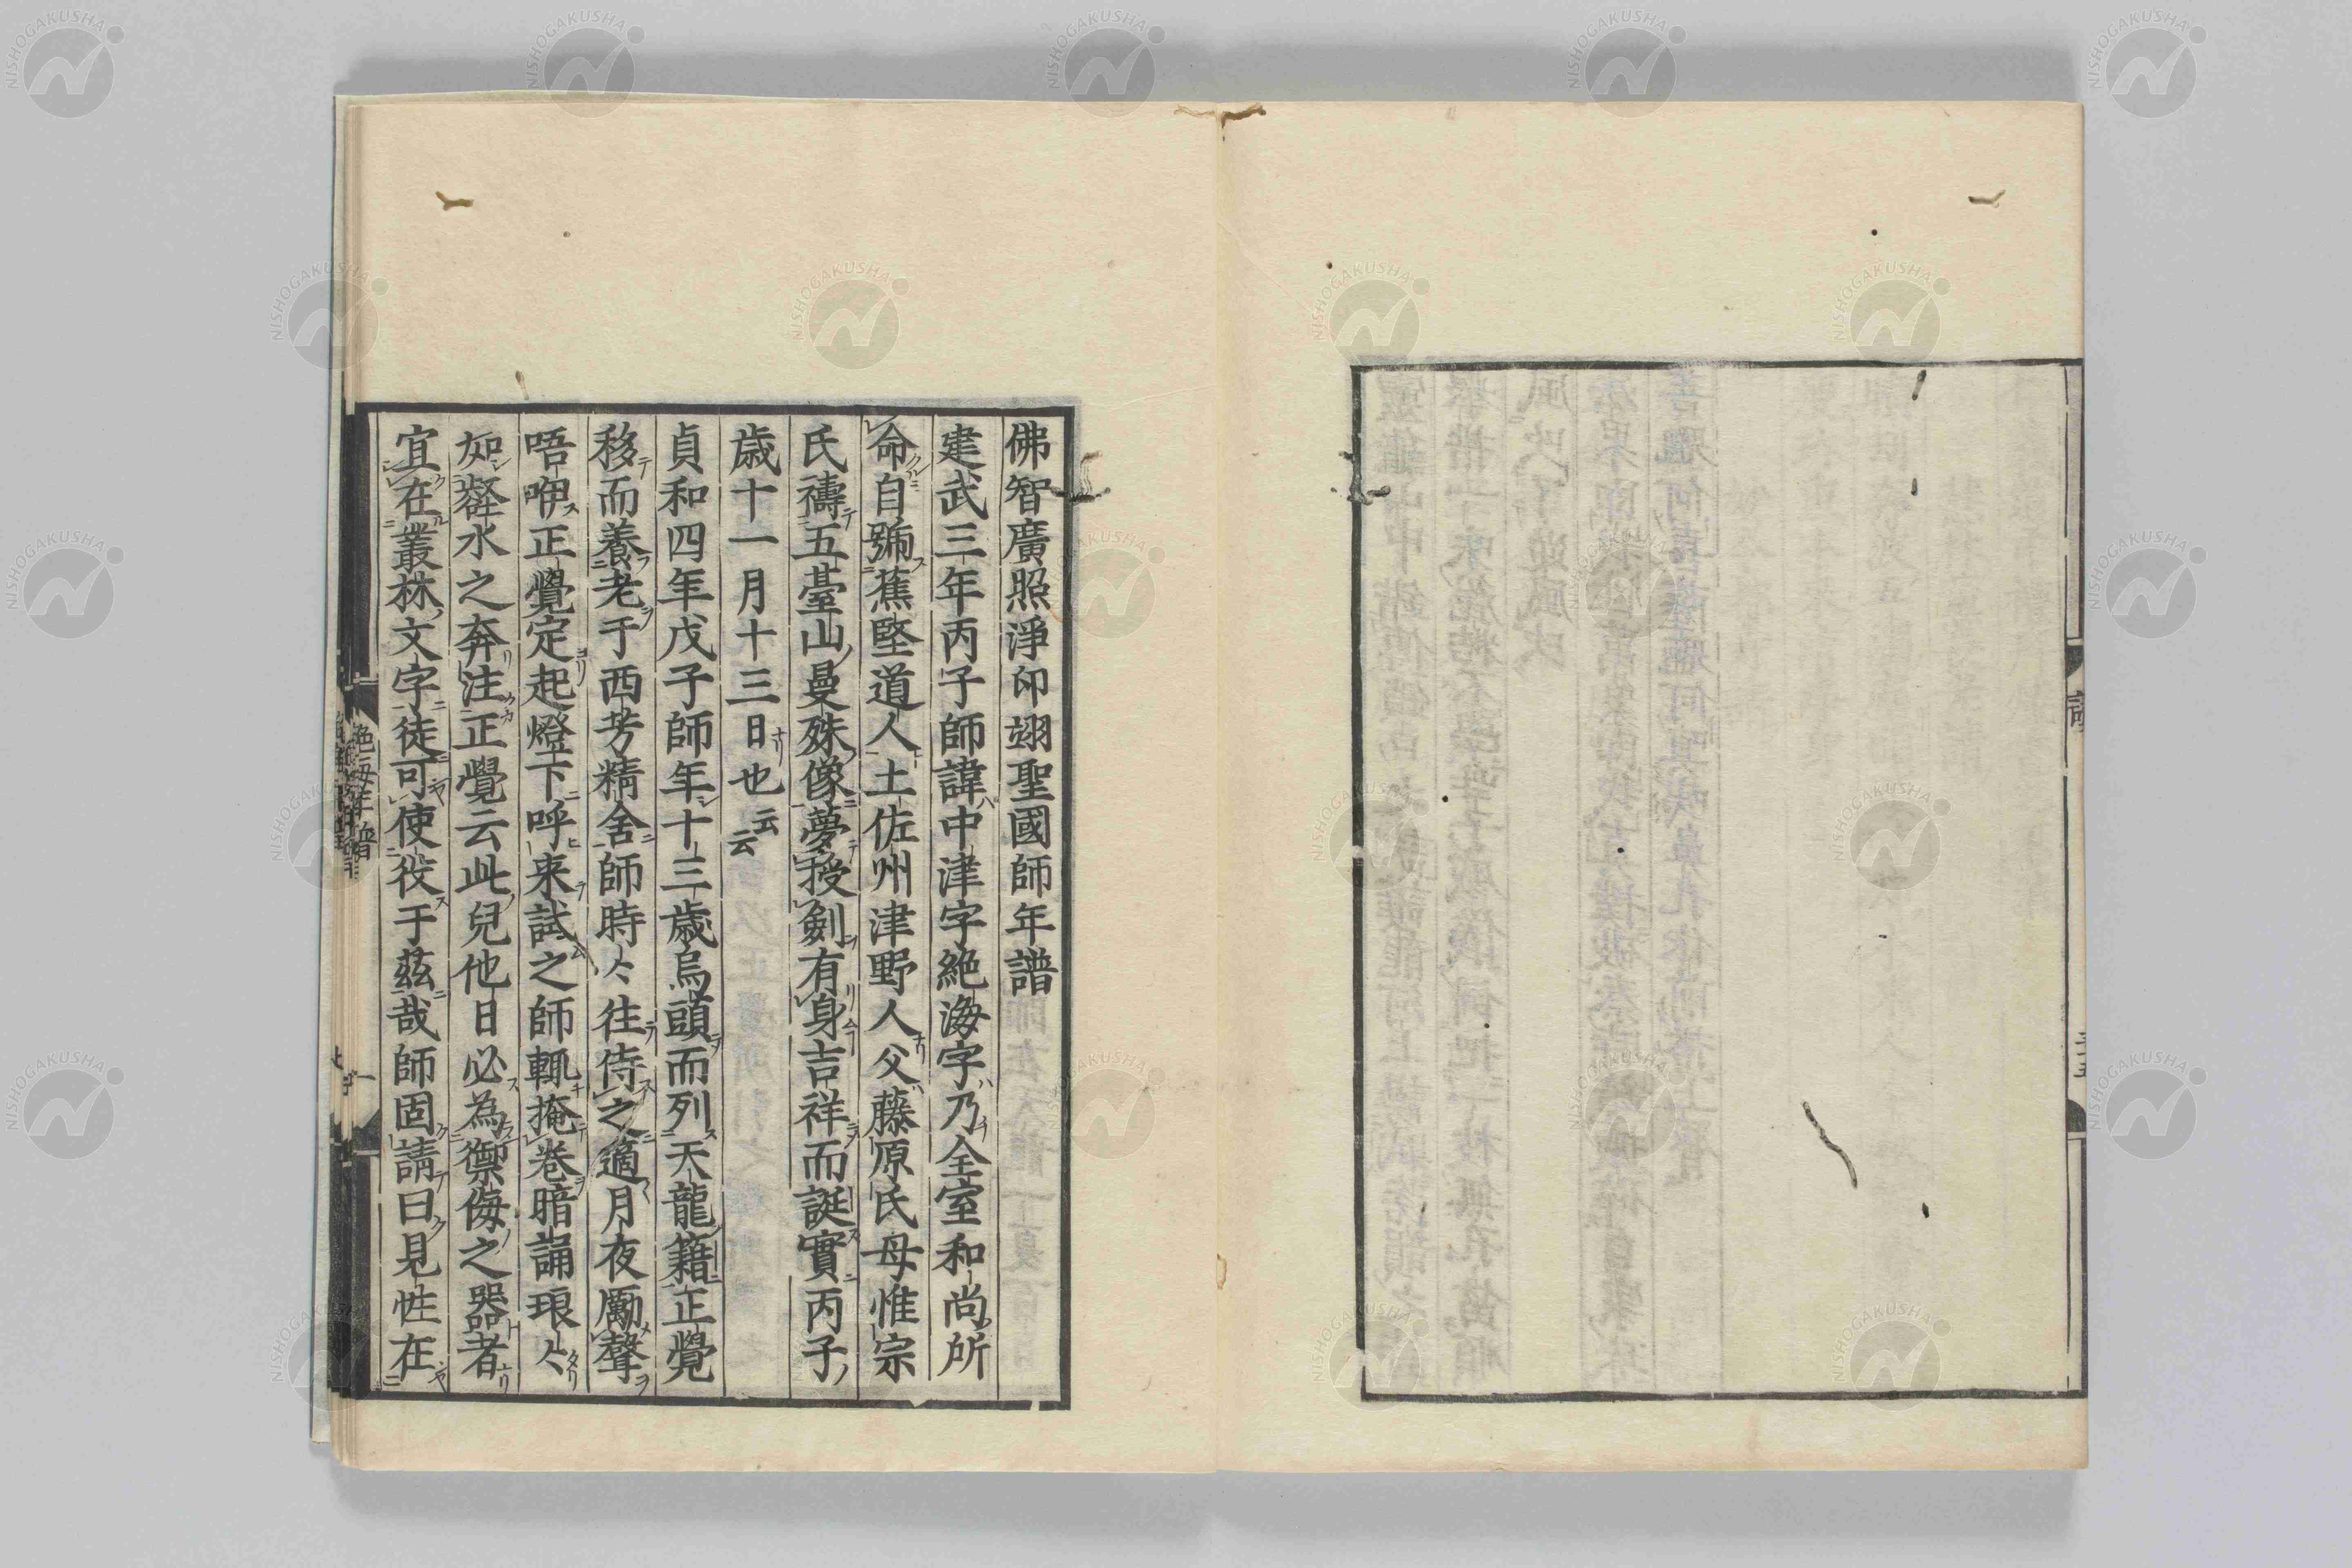 佛智廣照淨印翊聖國師年譜
建武三年丙子師諱中津字絶海字乃全室和尚所
命自號蕉堅道人土佐州津野人父藤原氏母惟宗
氏禱五臺山曼殊像夢授剣有身吉祥而誕實丙子
歳十一月十三日也云云
貞和四年戊子師年十三歳烏頭而列天龍籍正覺
移而養老于西芳精舍師時々往侍之適月夜勵聲
唔咿正覺定起燈下呼来試之師輒掩巻暗誦琅々
如壑水之奔注正覺云此兒他日必為禦侮之器者
宜在叢林文字徒可使役于茲哉師固請曰見性在
絶海年譜
一
NISHOGAKUSHA